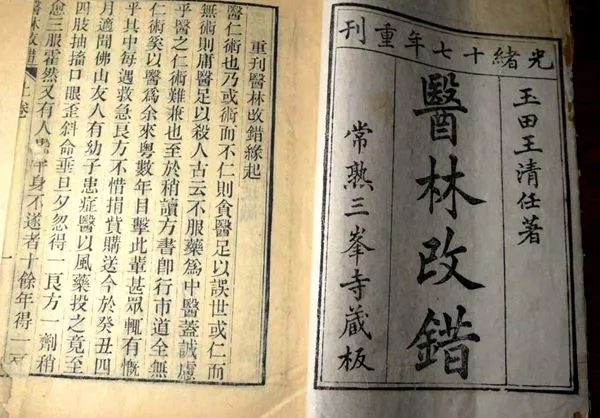 光緒十七年重刊
玉田王清任著
醫林改錯
常熟三峯寺藏板
重刊醫林改錯緣起
醫仁術也乃或術而不仁則貪醫足以誤世或仁而
無術則庸醫足以殺人古云不服藥爲中醫蓋誠慮
乎醫之仁術難兼也至於稍讀方書卽行市道全無
仁術奚以醫爲余來粤數年目擊此輩甚眾輒有慨
乎其中每遇救急良方不惜捐貲購送今於癸丑四
月適聞佛山友人有幼子患症醫以風藥投之竟至
四肢抽搐口眼歪斜命垂旦夕忽得一良方一劑稍
愈三服霍然又有人半身不遂者十餘年得一
醫林改錯 上卷 一